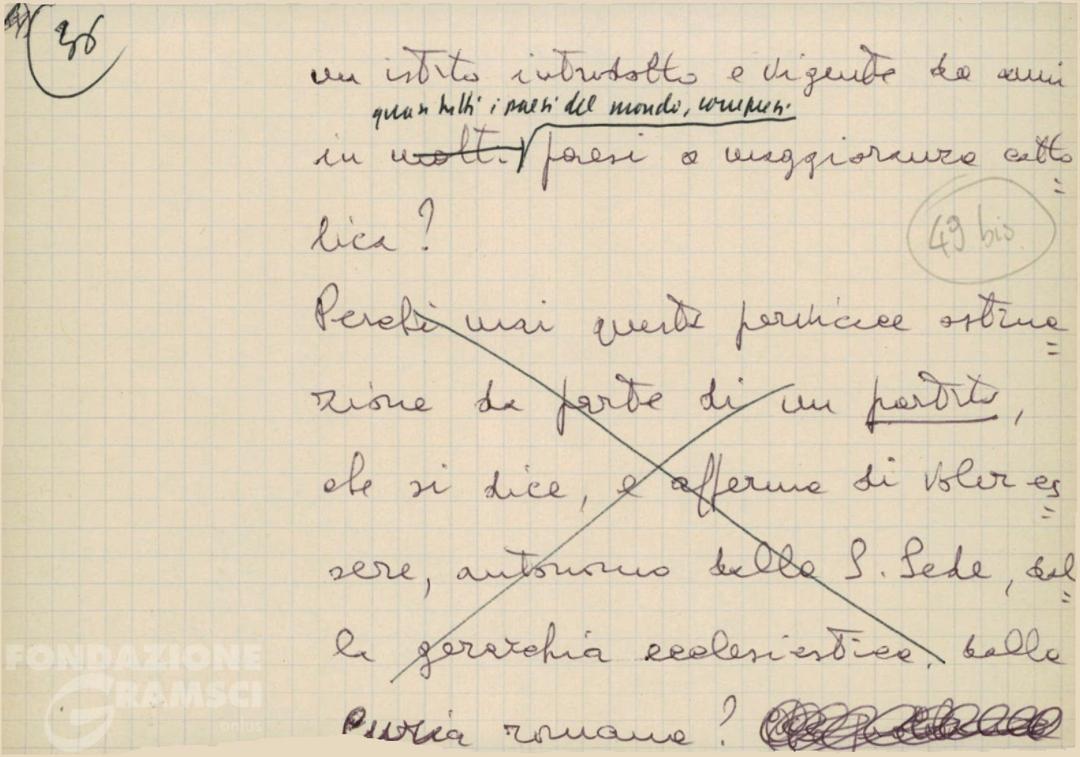 36
un istituto introdotto e vigente da anni
quasi tutti i paesi del mondo, compresi
in molti paesi a maggioranza catto
lica?
49 bis
Perché mai questa pervicace ostina
zione da parte di un partito,
che si dice, e afferma di voler es
sere, autonomo dalla S. Sede, dal
la gerarchia ecclesiastica, dalla
Curia romana?
FONDAZIONE
GRAMSCI
onlus